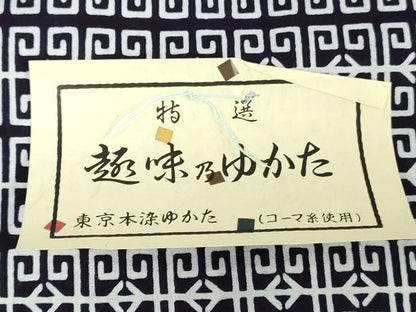 特 選
趣味乃ゆかた
東京本染ゆかた (コーマ糸使用)